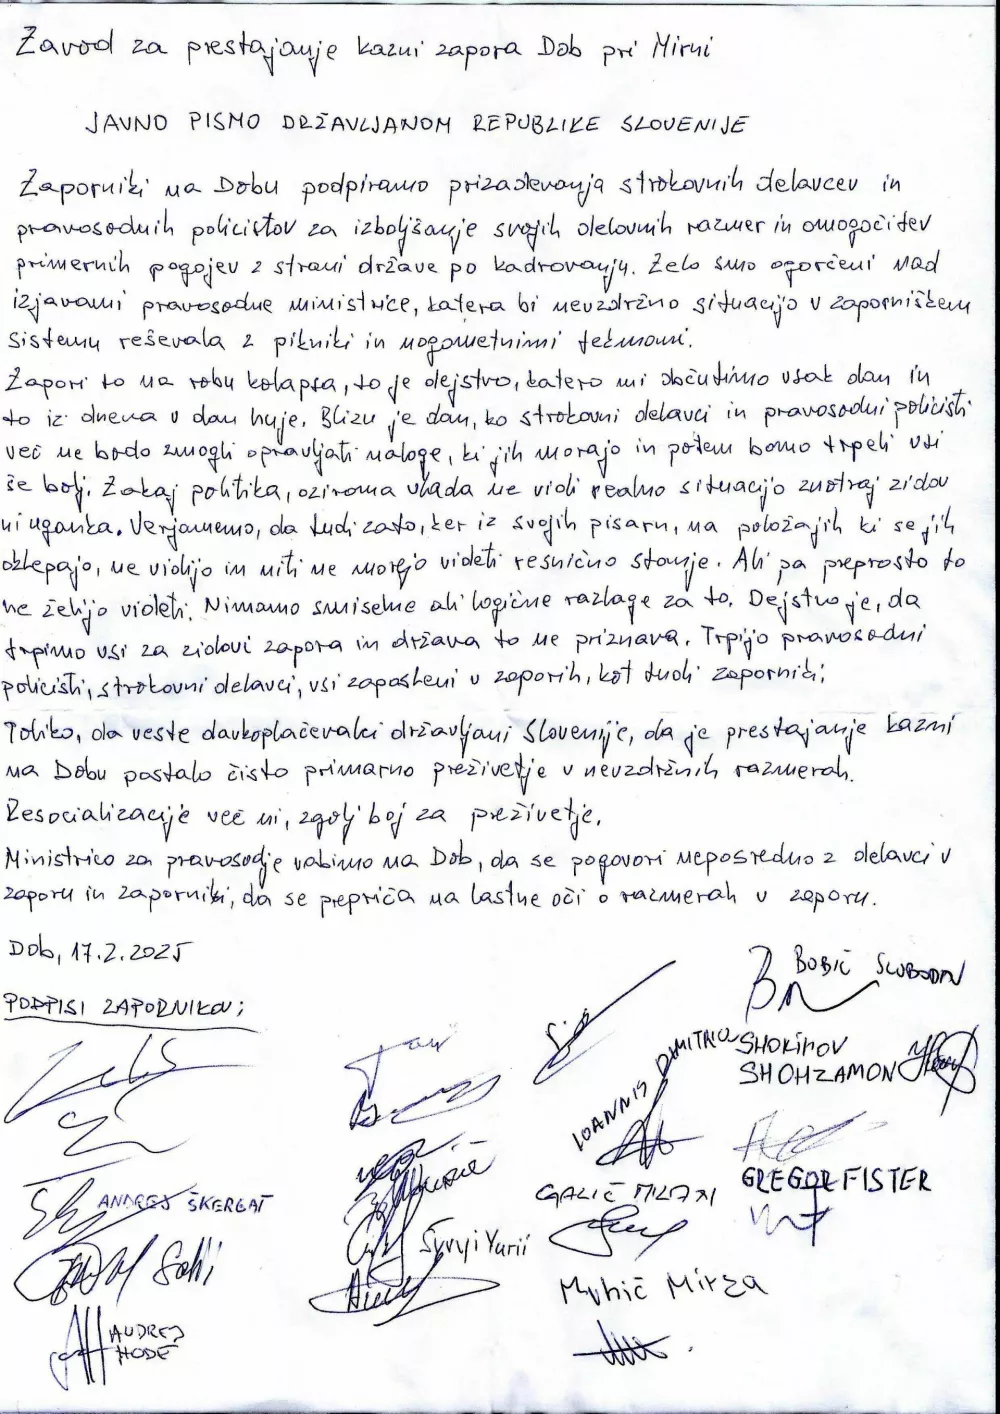 Zavod za prestajanje kazni zapora Dob pri Mirni
JAVNO PISMO DRŽAVLJANOM REPUBLIKE SLOVENIJE
Zaporniki na Dobu podpiramo prizadevanja strokovnih delavcev in
pravosodnih policistov za izboljšanje svojih delovnih razmer in omogočitev
primernih pogojev z strani države po kadrovanju. Zelo smo ogorčeni nad
izjavami pravosodne ministrice, katera bi nevzdržno situacijo v zaporniškem
sistemu reševala z pikniki in nogometnimi tekmami.
Zapori to na robu kolapsa, to je dejstvo, katero mi občutimo vsak dan in
to iz dneva v dan huje. Blizu je dan, ko strokovni delavci in pravosodni policisti
več ne bodo zmogli opravljati naloge, ki jih morajo in potem bomo trpeli vsi
še bolj. Zakaj politika, oziroma vlada ne vidi realno situacijo znotraj zidov
ni uganka. Verjamemo, da tudi zato, ker iz svojih pisarn, na položajih ki se jih
oklepajo, ne vidijo in niti ne morejo videti resnično stanje. Ali pa preprosto to
ne želijo videti. Nimamo smiselne ali logične razlage za to. Dejstvo je, da
trpimo vsi za zidovi zapora in država to ne priznava. Trpijo pravosodni
policisti, strokovni delavci, vsi zaposleni v zaporih, kot tudi zaporniki;
Toliko, da veste davkoplačevalci državljani Slovenije, da je prestajanje kazni
na Dobu postalo čisto primarno preživetje v nevzdržnih razmerah.
Resocializacije več ni, zgolj boj za preživetje.
Ministrico za pravosodje vabimo na Dob, da se pogovori neposredno z delavci v
zaporu in zaporniki, da se prepriča na lastne oči o razmerah v zaporu.
Dob, 17.2.2025
PODPISI ZAPORNIKOV;
BOBIČ SLOBODAN
IOANNIS DIMITRIO
SHOKIROV
SHOHZAMON
ANDREJ ŠKERGAT
GREGOR FISTER
Syvyi Yurii
Muhič Mirza
ANDREJ
HODE